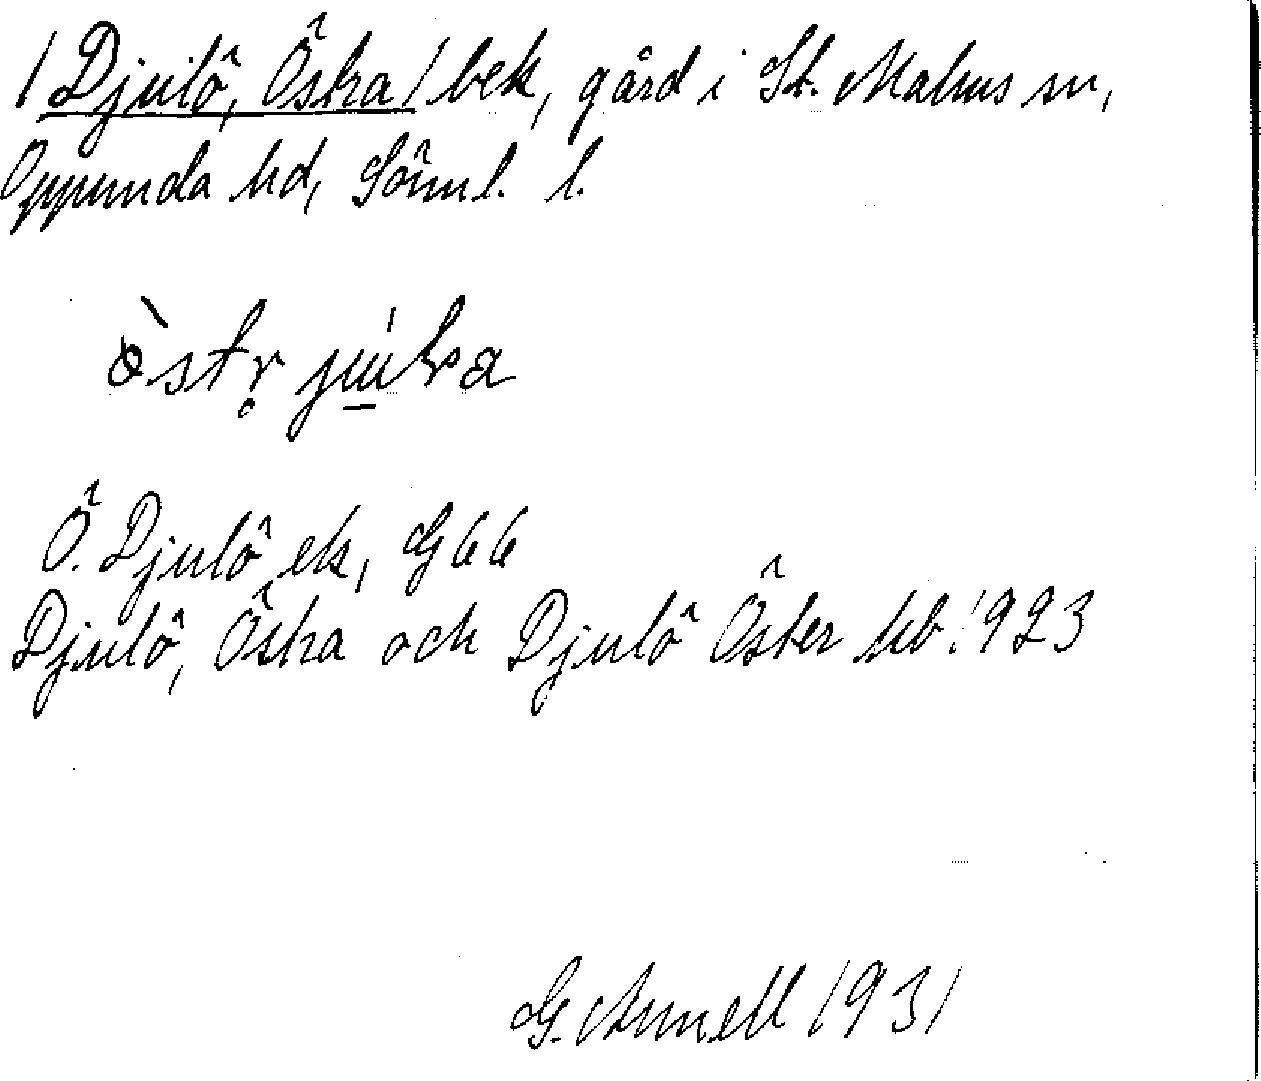 /Djulö, Östra/ bek, gård i St. Malms sn,
Oppunda hd, Söml. l.
Ö. Djulö ek, G 66
Djulö, Östra och Djulö Öster kb. 1923
G. Annell 1931